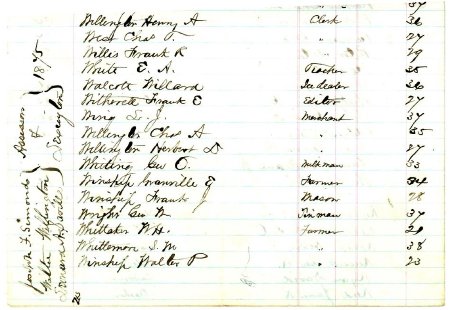 37
Wellington Henry A Clerk 36
West Chas T " 27
Willis Frank R " 29
White E. A. Teacher 35
Walcott Willard Ice dealer 36
Witherell Frank E Editor 27
Wing S. J. Merchant 37
Wellington Chas A " 55
Wellington Herbert L " 27
Whiting Geo C. Milkman 53
Winship Granville E Farmer 34
Winship Frank J Mason 28
Wright Geo W Fireman 37
Whittaker W. H. Farmer 29
Whittemore S. W. " 38
Winship Walter P " 23
Joseph F. Simonds
Walter Wellington
Leonard A. Saville
Assessors
of
Lexington
1875